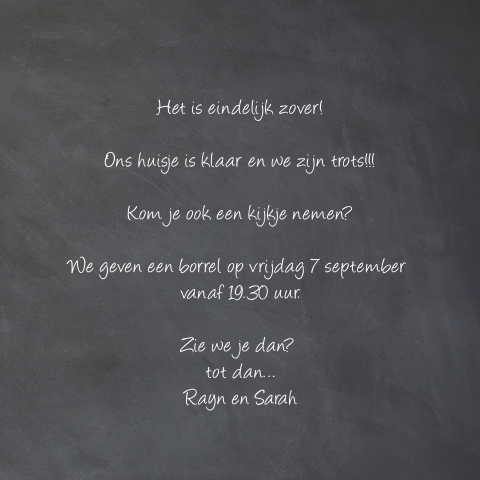 Het is eindelijk zover!
Ons huisje is klaar en we zijn trots!!!
Kom je ook een kijkje nemen?
We geven een borrel op vrijdag 7 september
vanaf 19.30 uur.
Zie we je dan?
tot dan...
Rayn en Sarah